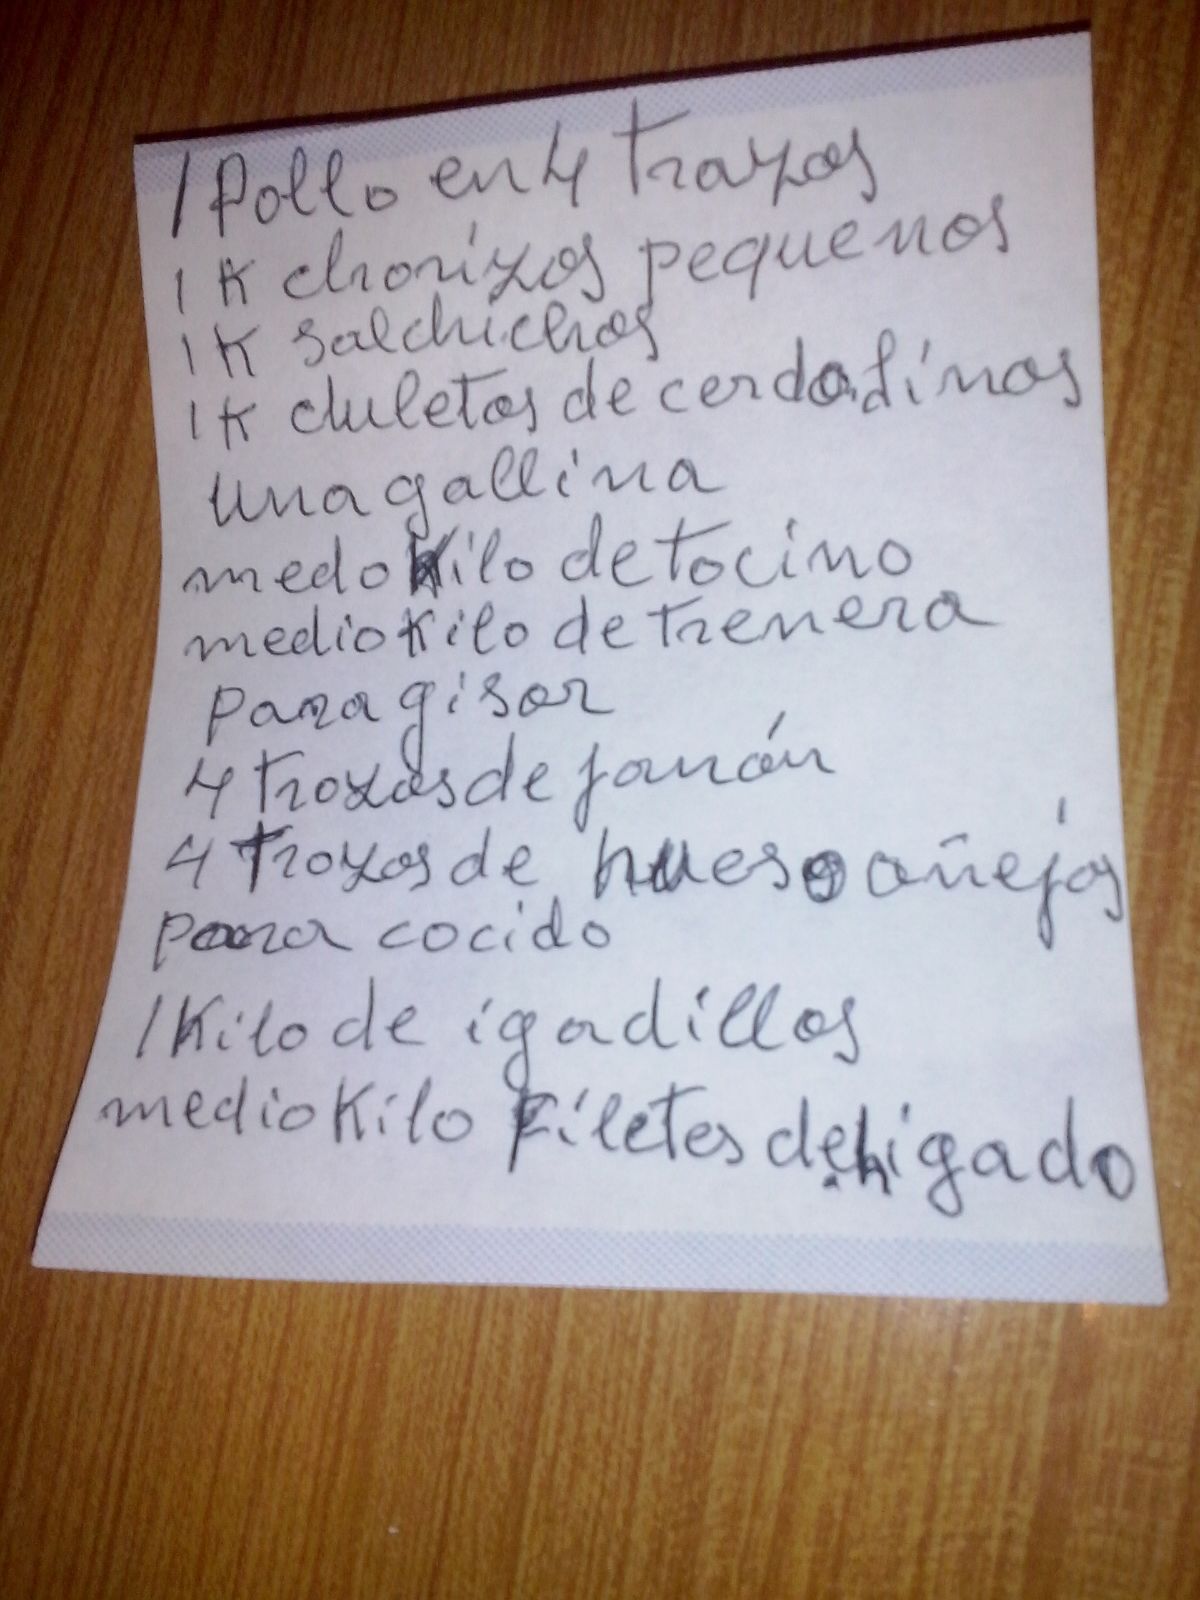 1 Pollo en 4 trozos
1 K chorizos pequenos
1 K salchichas
1 K chuletas de cerdo finas
una gallina
medo kilo de tocino
medio kilo de trenera
para gisar
4 trozos de jamón
4 trozos de hueso añejos
para cocido
1 Kilo de igadillos
medio Kilo Filetes de higado